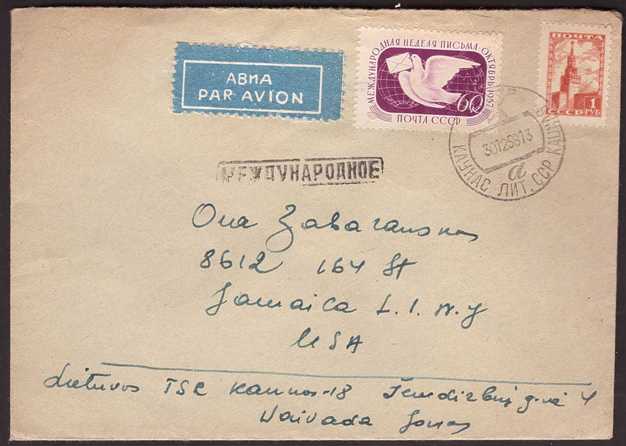 АВИА
PAR AVION
МЕЖДУНАРОДНАЯ НЕДЕЛЯ ПИСЬМА·ОКТЯБРЬ·1957
60
ПОЧТА СССР
ПОЧТА
1
РУБ
301258
КАУНАС ЛИТ. ССР
а
МЕЖДУНАРОДНОЕ
Ona
8612 164 St
Jamaica L. I. N.Y
USA
Lietuvos TSR Kaunas-18 4
Vaivada Jonas